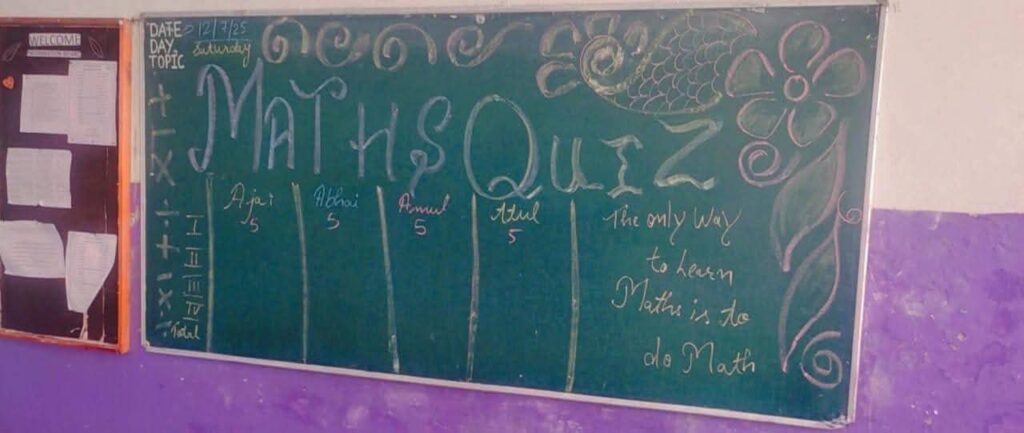 WELCOME
DATE 12/7/25
DAY Saturday
TOPIC
MATHS QUIZ
+ - × ÷ + - × ÷
Ajai Abhai Amul Atul
I 5 5 5 5
II
III
IV
Total
The only way
to learn
Maths is to
do Math